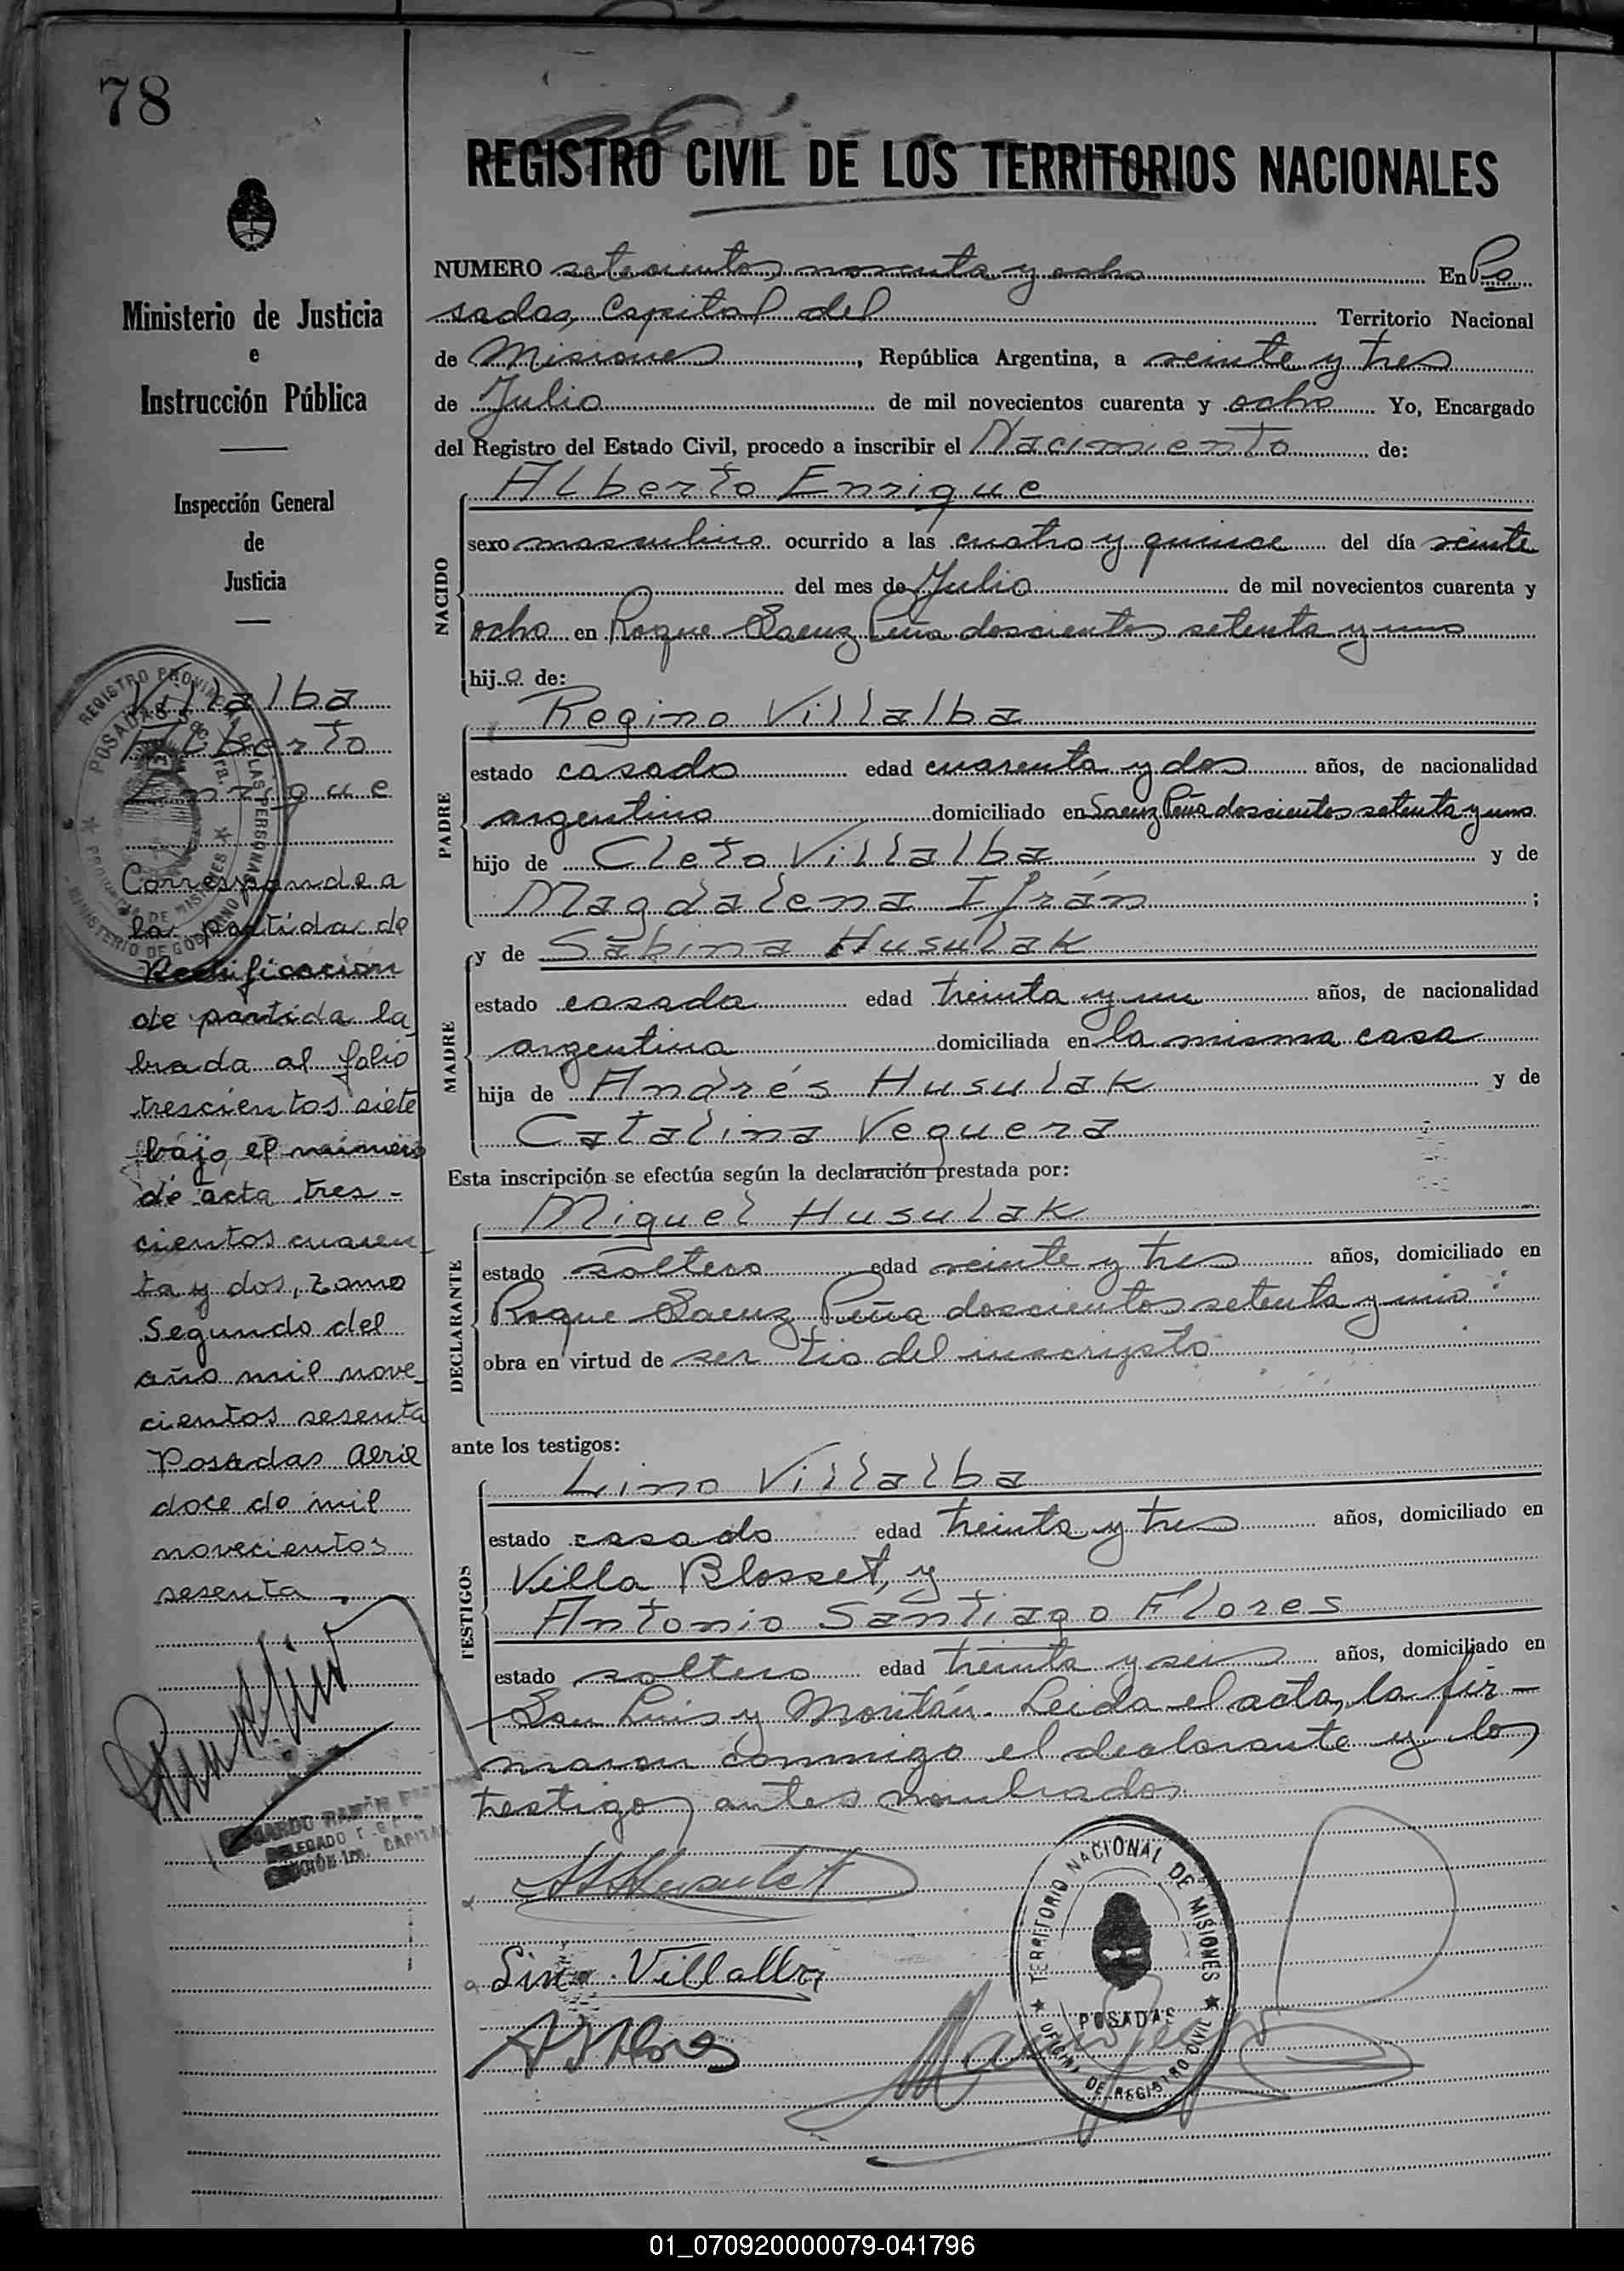 78
REGISTRO CIVIL DE LOS TERRITORIOS NACIONALES
Ministerio de Justicia
e
Instrucción Pública
Inspección General
de
Justicia
Villalba
Alberto
Enrique
Corresponde a
la partida de
Rectificación
de partida la
brada al folio
trescientos siete
bajo el número
de acta tres-
cientos cuaren
ta y dos, tomo
Segundo del
año mil nove
cientos sesenta
Posadas Abril
doce de mil
novecientos
sesenta.
REGISTRO PROVINCIAL DE LAS PERSONAS
POSADAS
PROVINCIA DE MISIONES
MINISTERIO DE GOBIERNO
NUMERO setecientos noventa y ocho En Po
sadas, Capital del Territorio Nacional
de Misiones, República Argentina, a veinte y tres
de Julio de mil novecientos cuarenta y ocho Yo, Encargado
del Registro del Estado Civil, procedo a inscribir el Nacimiento de:
NACIDO
Alberto Enrique
sexo masculino ocurrido a las cuatro y quince del día veinte
del mes de Julio de mil novecientos cuarenta y
ocho en Roque Saenz Peña doscientos setenta y uno
hijo de:
PADRE
Regino Villalba
estado casado edad cuarenta y dos años, de nacionalidad
argentino domiciliado en Saenz Peña doscientos setenta y uno
hijo de Cleto Villalba y de
Magdalena Ifrán ;
MADRE
y de Sabina Husulak
estado casada edad treinta y un años, de nacionalidad
argentina domiciliada en la misma casa
hija de Andrés Husulak y de
Catalina Veguera
Esta inscripción se efectúa según la declaración prestada por:
DECLARANTE
Miguel Husulak
estado soltero edad veinte y tres años, domiciliado en
Roque Saenz Peña doscientos setenta y uno
obra en virtud de ser tio del inscripto
ante los testigos:
TESTIGOS
Lino Villalba
estado casado edad treinta y tres años, domiciliado en
Villa Blosset, y
Antonio Santiago Flores
estado soltero edad treinta y seis años, domiciliado en
San Luis y Moritán. Leida el acta, la fir-
maron conmigo el declarante y los
testigos antes nombrados.
Lino Villalba
TERRITORIO NACIONAL DE MISIONES
POSADAS
OFICINA DE REGISTRO CIVIL
01_070920000079-041796